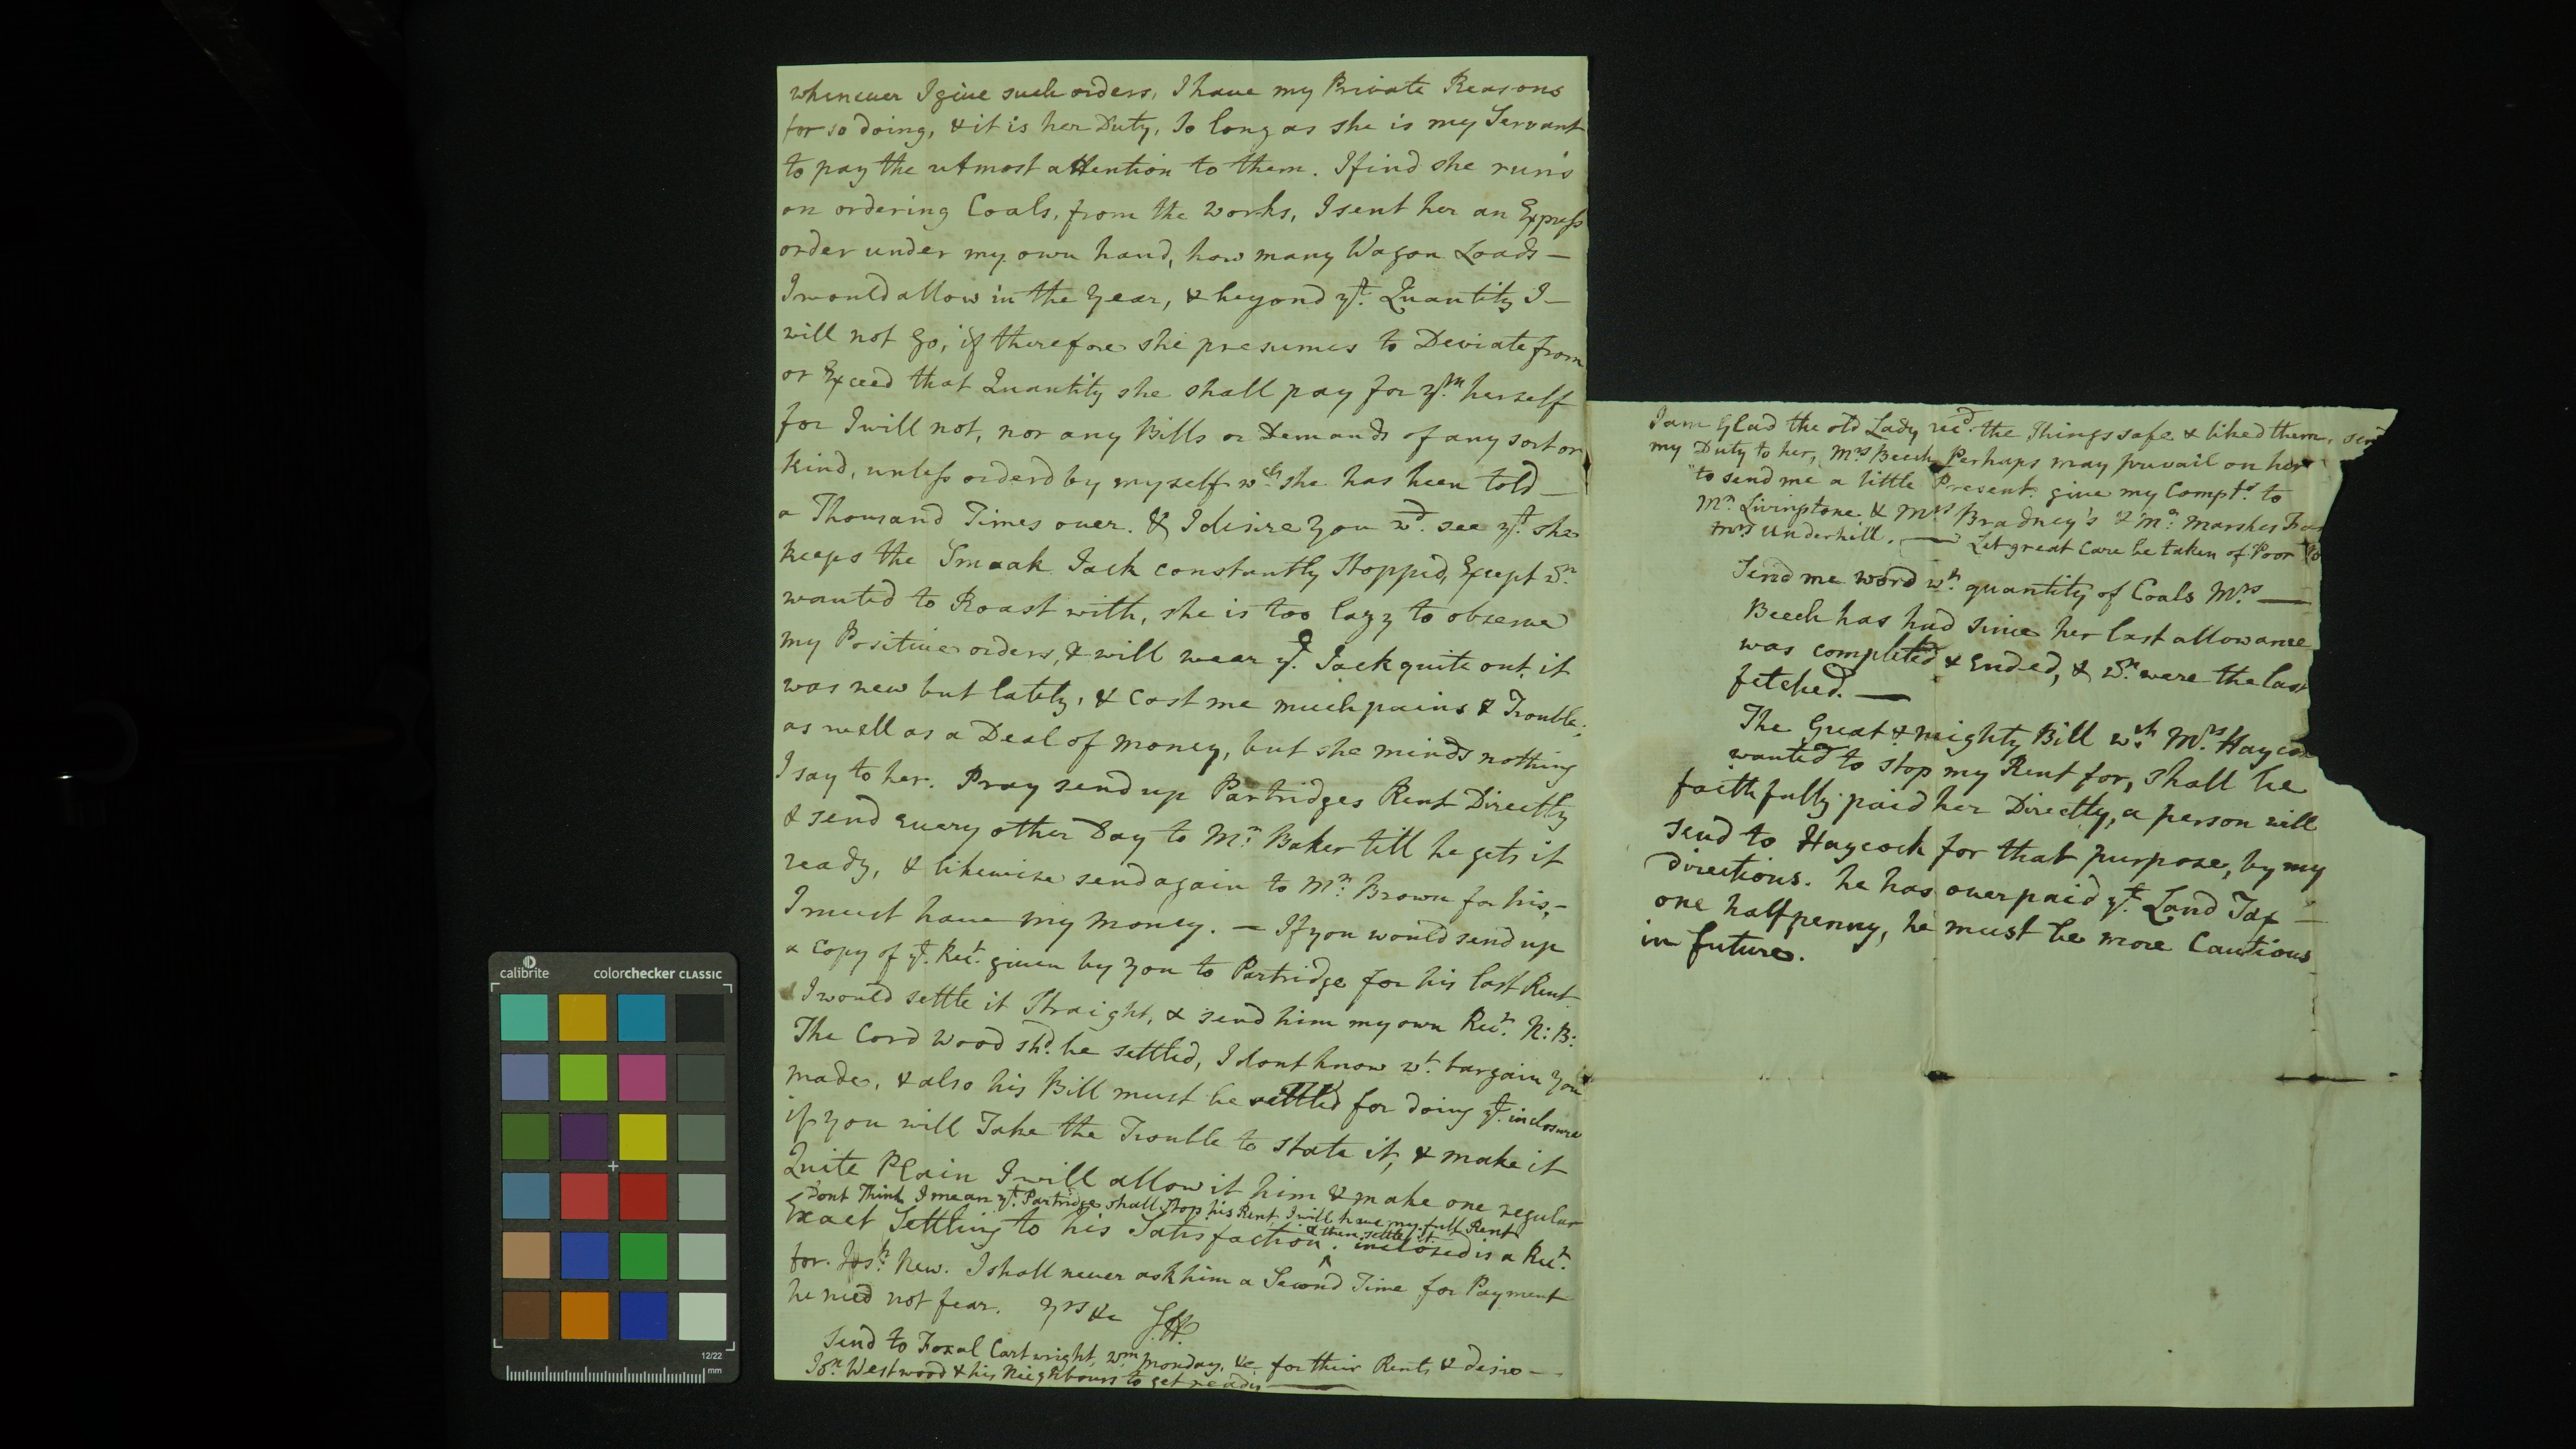 whenever I give such orders, I have my Private Reasons
for so doing, & it is her Duty, so long as she is my Servant
to pay the utmost attention to them. I find she runs
on ordering Coals, from the works, I sent her an Express
order under my own hand, how many Wagon Loads —
I would allow in the year, & beyond yt. Quantity I —
will not go, if therefore she presumes to Deviate from
or Exceed that Quantity she shall pay for ym. herself
for I will not, nor any Bills or Demands of any sort or
kind, unless orderd by myself wch. she has been told —
a Thousand Times over. & I desire you wd. see yt. she
keeps the Smoak Jack constantly Stopped, Except wn.
wanted to Roast with, she is too lazy to observe
my Positive orders, & will wear ye. Jack quite out, it
was new but lately, & cost me much pains & Trouble,
as well as a Deal of money, but she minds nothing
I say to her. Pray send up Partridges Rent Directly
& send every other Day to Mr. Baker till he gets it
ready, & likewise send again to Mr. Brown for his, –
I must have my money. — If you would send up
a Copy of ye. Rect. given by you to Partridge for his last Rent
I would settle it Straight, & send him my own Rect. N:B:
The Cord Wood shd. be settled, I dont know wt. bargain you
made, & also his Bill must be settled for doing ye. inclosure
if you will Take the Trouble to state it, & make it
Quite Plain I will allow it him & make one regular
Dont Think I mean yt. Partridge shall stop his Rent, I will have my full Rent
& then settle it.
Exact Settling to his Satisfaction. ^ inclosed is a Rect.
for Josh. New. I shall never ask him a Second Time for Payment
he need not fear. yrs &c
Send to Foxal Cartwright, Wm. Monday, &c for their Rents & desire —
Jon. Westwood & his Neighbours to get ready —
I am Glad the old Lady recd. the Things safe & liked them,
my Duty to her, Mrs Beech Perhaps may prevail on her
to send me a little Present. give my Compts. to
Mr. Livingstone & Mrs Bradney's & Mr. Marshes
Mrs Underhill. — Let great care be taken of Poor
Send me word wt. quantity of Coals Mrs. —
Beech has had since her last allowance
was completed & Ended, & wn. were the last
fetched. —
The Great & mighty Bill wch. Mrs. Hayco
wanted to stop my Rent for, shall be
faithfully paid her Directly, a person will
send to Haycock for that purpose, by my
directions. he has overpaid ye. Land Tax —
one halfpenny, he must be more Cautious
in future.
calibrite
colorchecker CLASSIC
12/22
mm